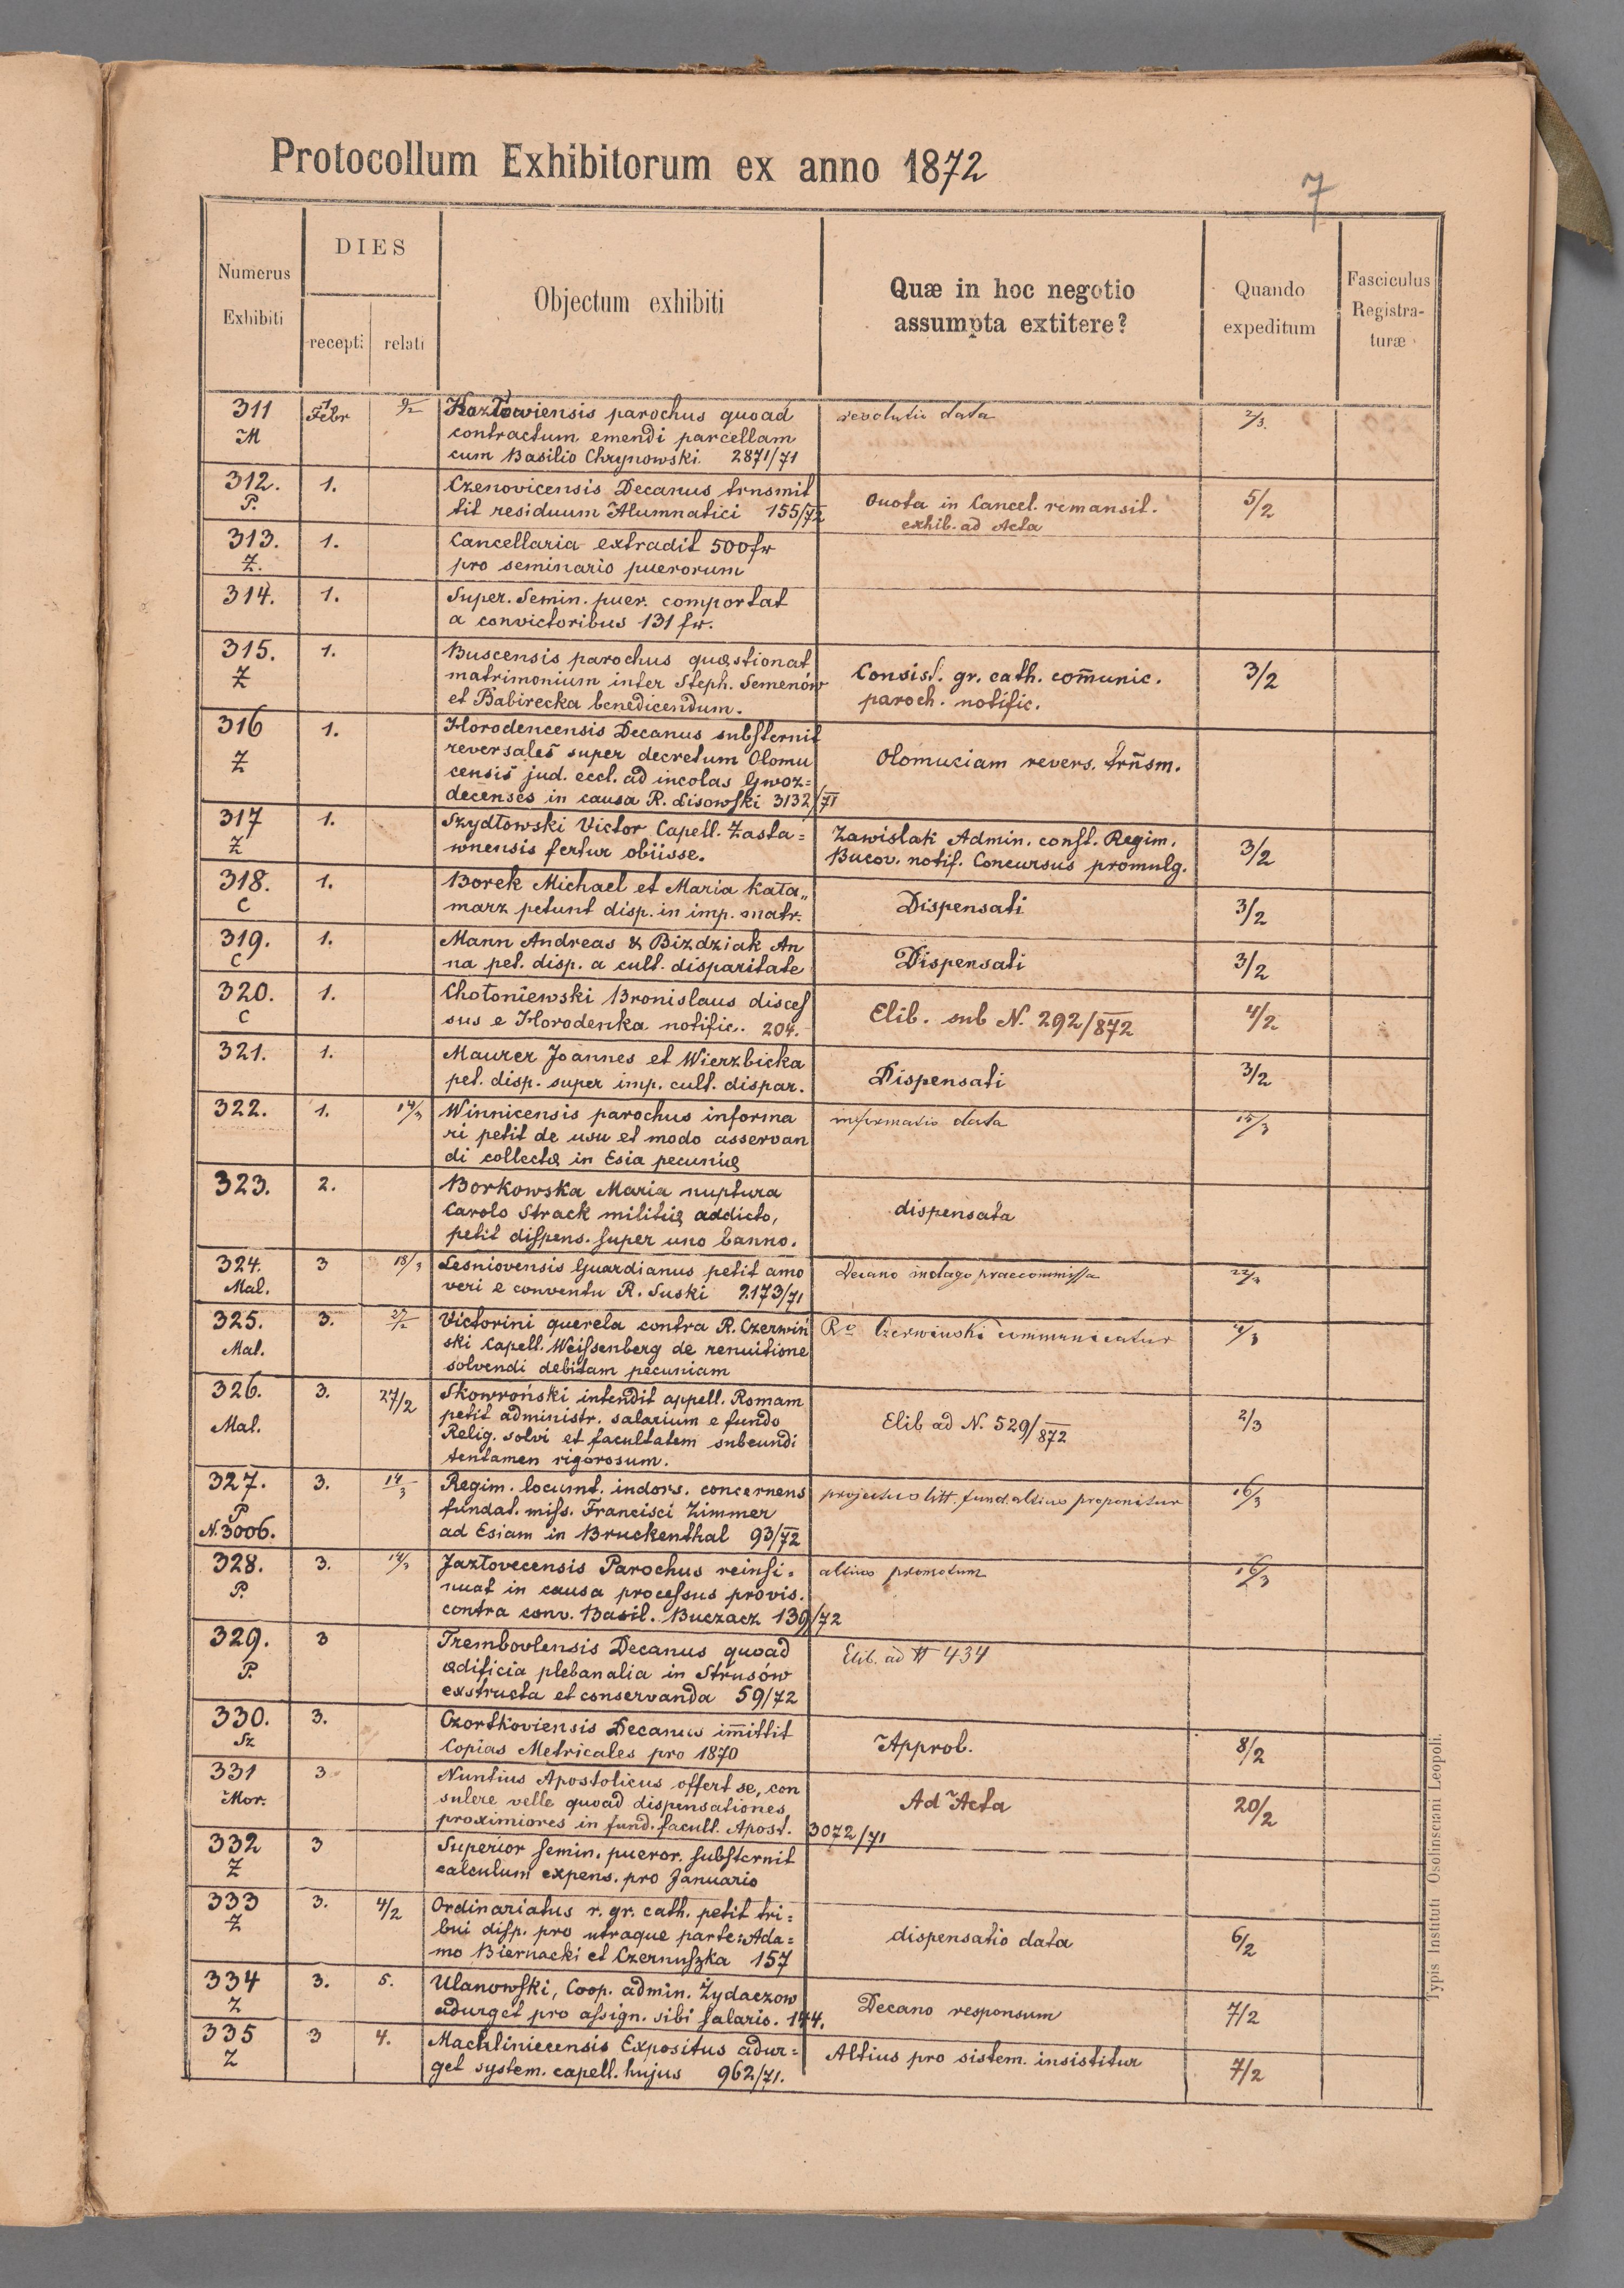 Protocollum Exhibitorum ex anno 1872
7
Numerus Exhibiti
DIES
recepti relati
Objectum exhibiti
Quæ in hoc negotio assumpta extitere?
Quando expeditum
Fasciculus Registra-turæ
311 1 Febr 9/2 Kozłowiensis parochus quoad resolutio data 2/3.
M contractum emendi parcellam
cum Basilio Chrynowski 2871/71
312. 1. Czenovicensis Decanus trnsmit Quota in Cancel. remansit. 5/2
P. tit residuum Alumnatici 155/72 exhib. ad Acta
313. 1. Cancellaria extradit 500 fw
Z. pro seminario puerorum
314. 1. Super. Semin. puer. comportat
a convictoribus 131 fw.
315. 1. Buscensis parochus quæstionat Consist. gr. cath. com̄unic. 3/2
Z matrimonium inter Steph. Semenów paroch. notific.
et Babirecka benedicendum.
316 1. Horodencensis Decanus substernit
reversales super decretum Olomu Olomuciam revers. trñsm.
Z censis jud. eccl. ad incolas Gwoz=
decenses in causa R. Lisowski 3132/71
317 1. Szydłowski Victor Capell. Zasta= Zawislak Admin. const. Regim. 3/2
Z wnensis fertur obiisse. Bucov. notif. Concursus promulg.
318. 1. Borek Michael et Maria Kata„ Dispensati 3/2
C marz petunt disp. in imp. matr.
319. 1. Mann Andreas & Bizdziak An Dispensati 3/2
C na pet. disp. a cult. disparitate
320. 1. Chołoniewski Bronislaus disces Elib. sub N. 292/872 4/2
C sus e Horodenka notific. 204.
321. 1. Maurer Joannes et Wierzbicka Dispensati 3/2
pet. disp. super imp. cult. dispar.
322. 1. 14/3 Winnicensis parochus informa informatio data 15/3
ri petit de usu et modo asservan
di collectæ in Esia pecuniæ
323. 2. Borkowska Maria nuptura
Carolo Strack militiæ addicto, dispensata
petit dispens. super uno banno.
324. 3 18/3 Lesniovensis Guardianus petit amo Decano indago praecommissa 22/3
Mal. veri e conventu R. Suski 2173/71
325. 3. 27/2 Victorini querela contra R. Czerwiń Ro Czerwinski communicatur 4/3
Mal. ski Capell. Weissenberg de renuitione
solvendi debitam pecuniam
326. 3. 27/2 Skowroński intendit appell. Romam
petit administr. salarium e fundo Elib ad N. 529/872 2/3
Mal. Relig. solvi et facultatem subeundi
tentamen rigorosum.
327. 3. 14/3 Regim. locumt. indors. concernens projectus litt. fund. altius proponitur 16/3
P fundat. miss. Francisci Zimmer
N. 3006. ad Esiam in Bruckenthal 93/72
328. 3. 14/3 Jazłovecensis Parochus reinsi= altius promotum 16/3
P. nuat in causa processus provis.
contra conv. Basil. Buczacz 139/72
329. 3 Trembovlensis Decanus quoad Elib. ad N 434
P. ædificia plebanalia in Strusów
exstructa et conservanda 59/72
330. 3. Czortkoviensis Decanus im̄ittit Approb. 8/2
Sz Copias Metricales pro 1870
331 3 Nuntius Apostolicus offert se, con
Mor. sulere velle quoad dispensationes Ad Acta 20/2
proximiores in fund. facult. Apost. 3072/71
332 3 Superior semin. pueror. substernit
Z calculum expens. pro Januario
333 3. 4/2 Ordinariatus r. gr. cath. petit tri=
Z bui disp. pro utraque parte: Ada= dispensatio data 6/2
mo Biernacki et Czernuszka 157
334 3. 5. Ulanowski, Coop. admin. Żydaczow Decano responsum 7/2
Z adurget pro assign. sibi salario. 144.
335 3 4. Machliniecensis Expositus adur= Altius pro sistem. insistitur 7/2
Z get system. capell. hujus 962/71.
Typis Instituti Osolinsciani Leopoli.